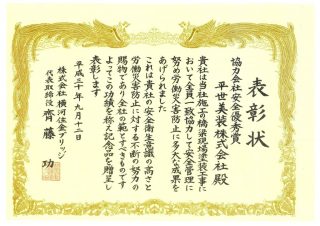 表彰状
協力会社安全優秀賞
平世美装株式会社 殿
貴社は当社施工の橋梁現場塗装工事に
おいて全員一致協力して安全管理に
努め労働災害防止に多大な成果を
あげられました
これは貴社の安全衛生意識の高さと
労働災害防止に対する不断の努力の
賜物であり全社の範とすべきものです
よってこの功績を称え記念品を贈呈し
表彰します
平成三十年九月十二日
株式会社横河住金ブリッジ
代表取締役 齊藤 功